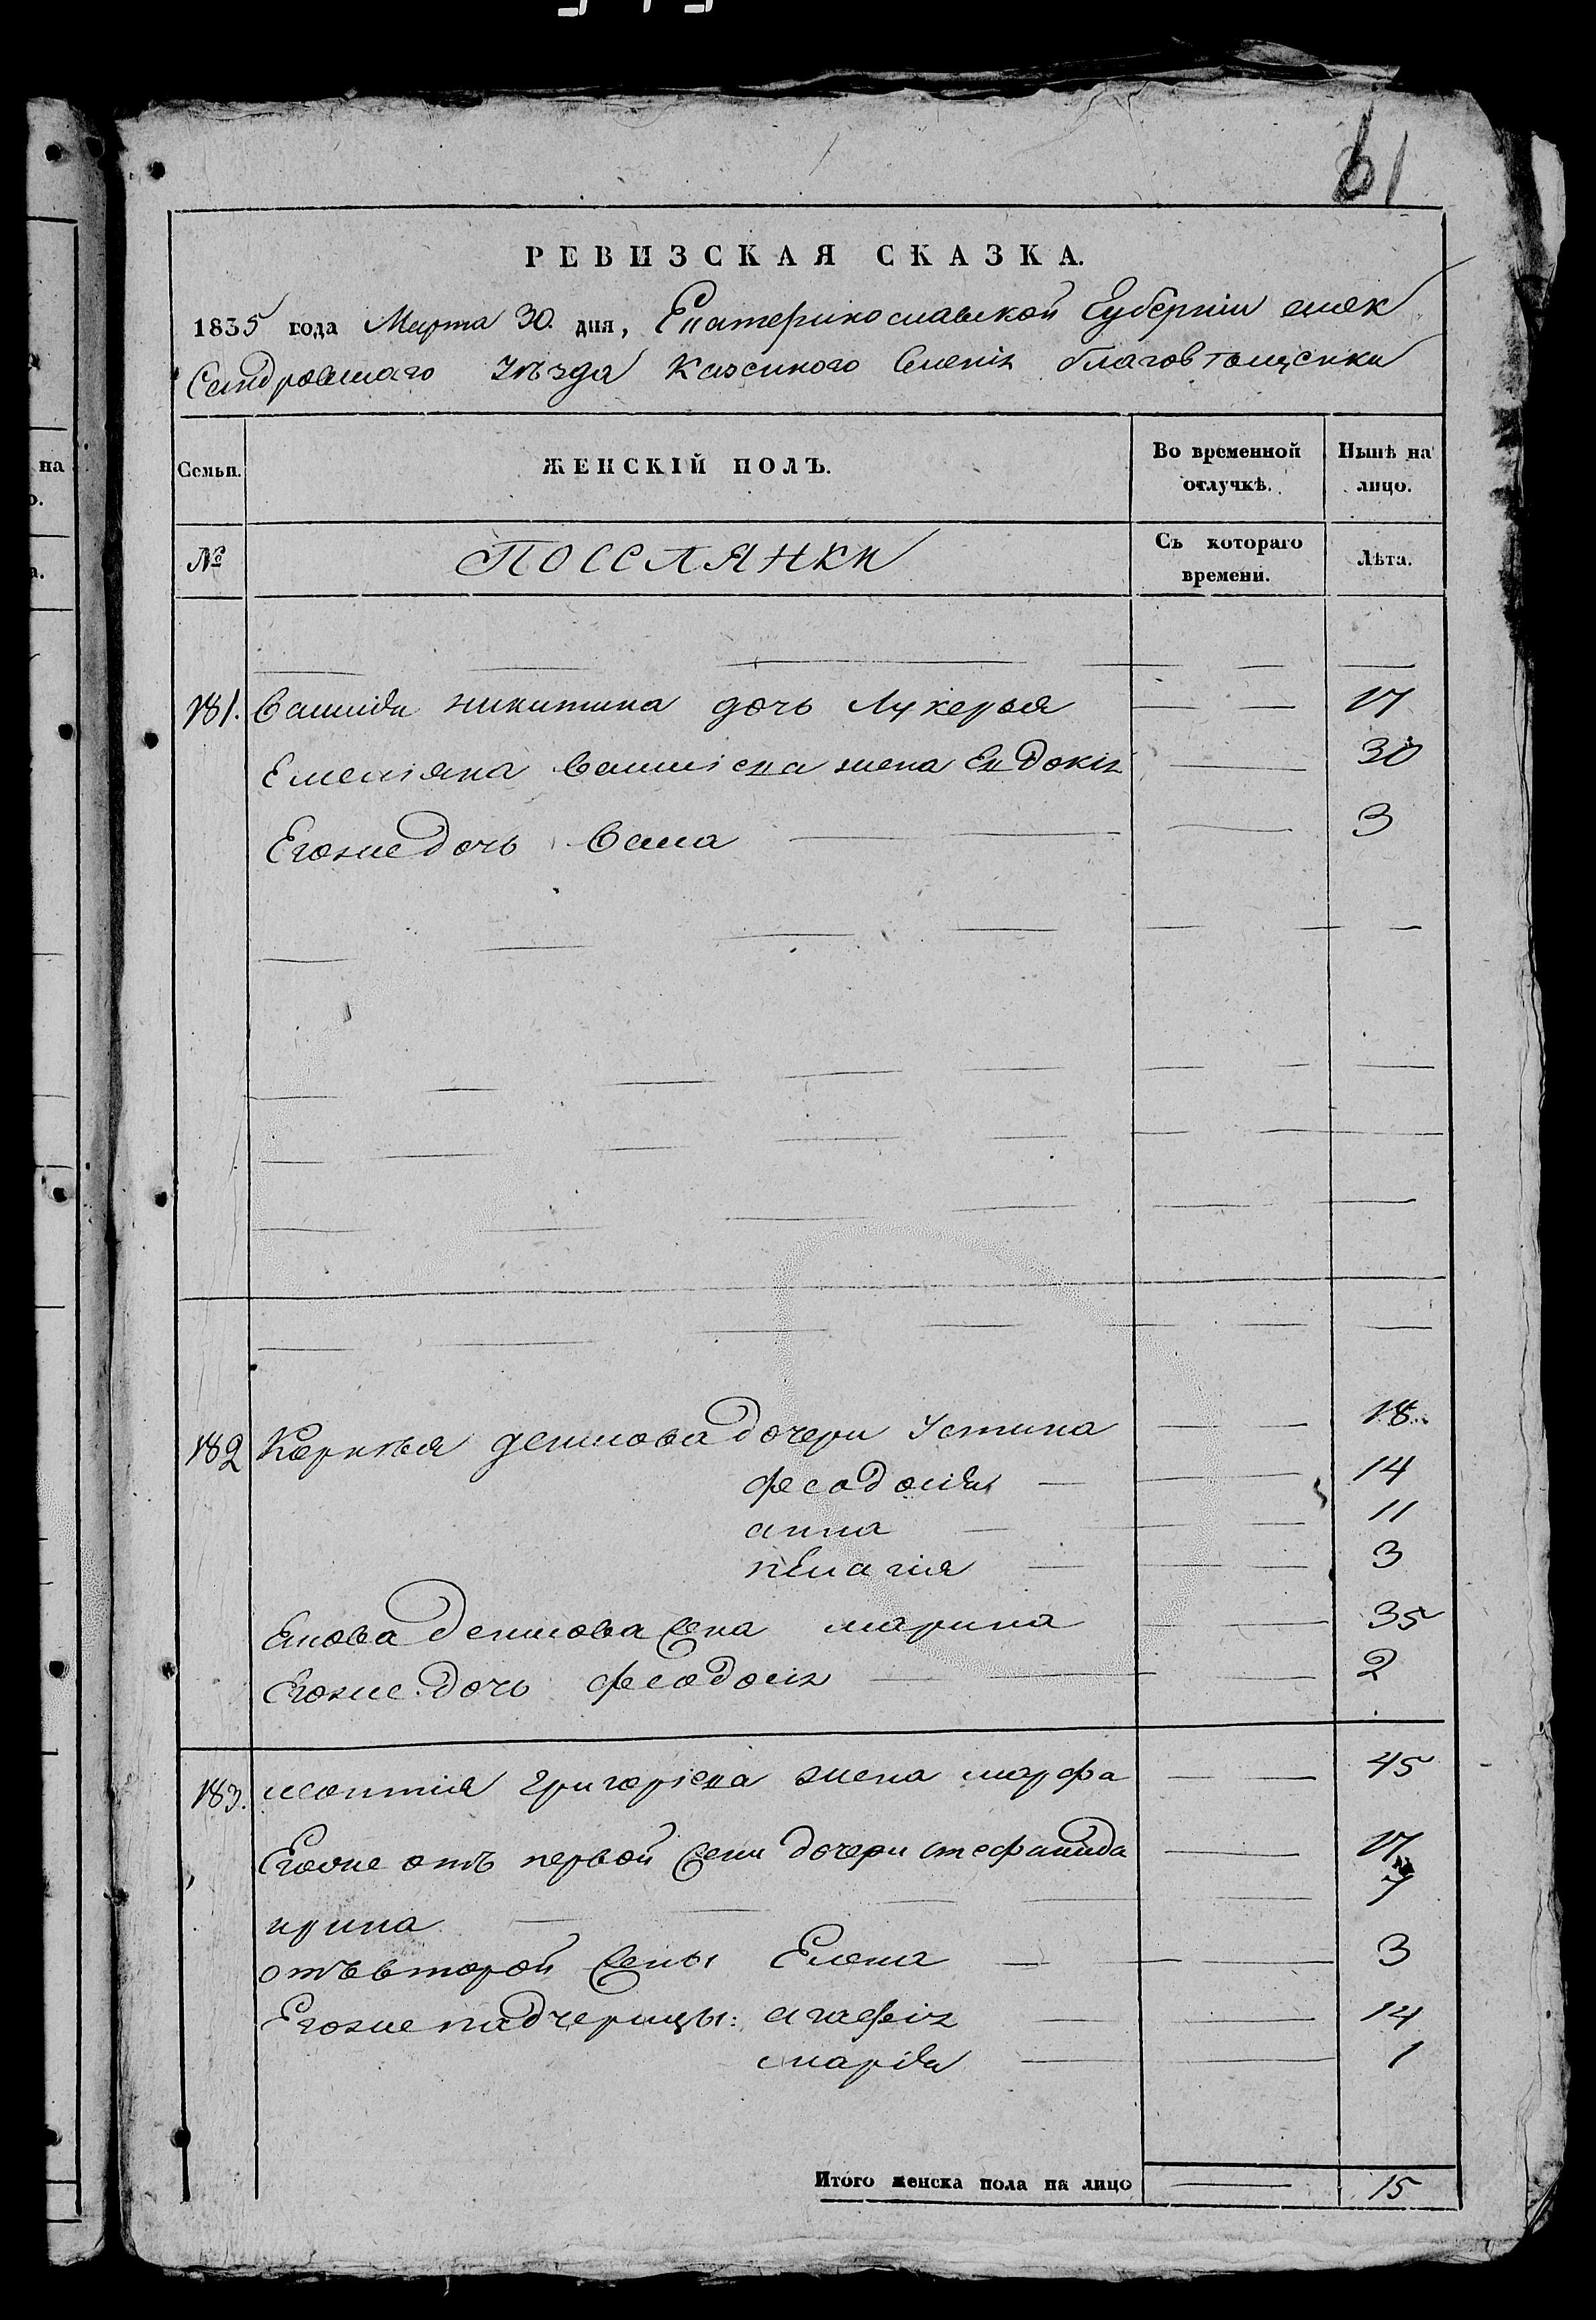 61
РЕВИЗСКАЯ СКАЗКА.
1835 года Марта 30. дня, Екатеринославской Губернии алек
сандровскаго уѣзда казенного селенія благовѣщенки
на
Семьи.
ЖЕНСКІЙ ПОЛЪ.
Во временной
отлучкѣ.
Нынѣ на
лицо.
о.
№
ПОСЕЛЯНКИ
Съ котораго
времени.
Лѣта.
а.
181. никитина дочь Лукерья 17
Емелiяна жена Евдокія 30
Егоже дочь 3
182 Корнѣя денисова дочери Устина 18
феодосія 14
анна 11
пелагія 3
Якова денисова жена марина 35
Егоже дочь феодосія 2
183. григоріева жена марфа 45
Егоже отъ первой жены дочери стефанида 17
ирина 7
отъ второй жены Елена 3
Егоже падчерицы: агафія 14
марія 1
Итого женска пола на лицо 15